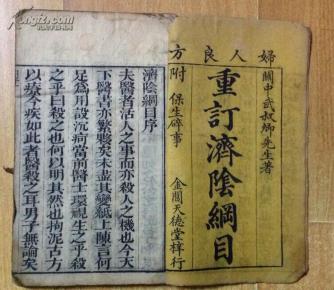 婦人良方
關中武叔卿先生著
重訂濟陰綱目
附 保生碎事
金閶天德堂梓行
濟陰綱目序
夫醫者活人之事而亦殺人之機也今天
下醫書亦繁夥矣未盡其變紙上陳言何
足為用設沉疴當前醫士環視生之乎殺
之乎曰殺之也何以明其然也拘泥古方
以療今疾如此者醫殺之耳男子無論矣